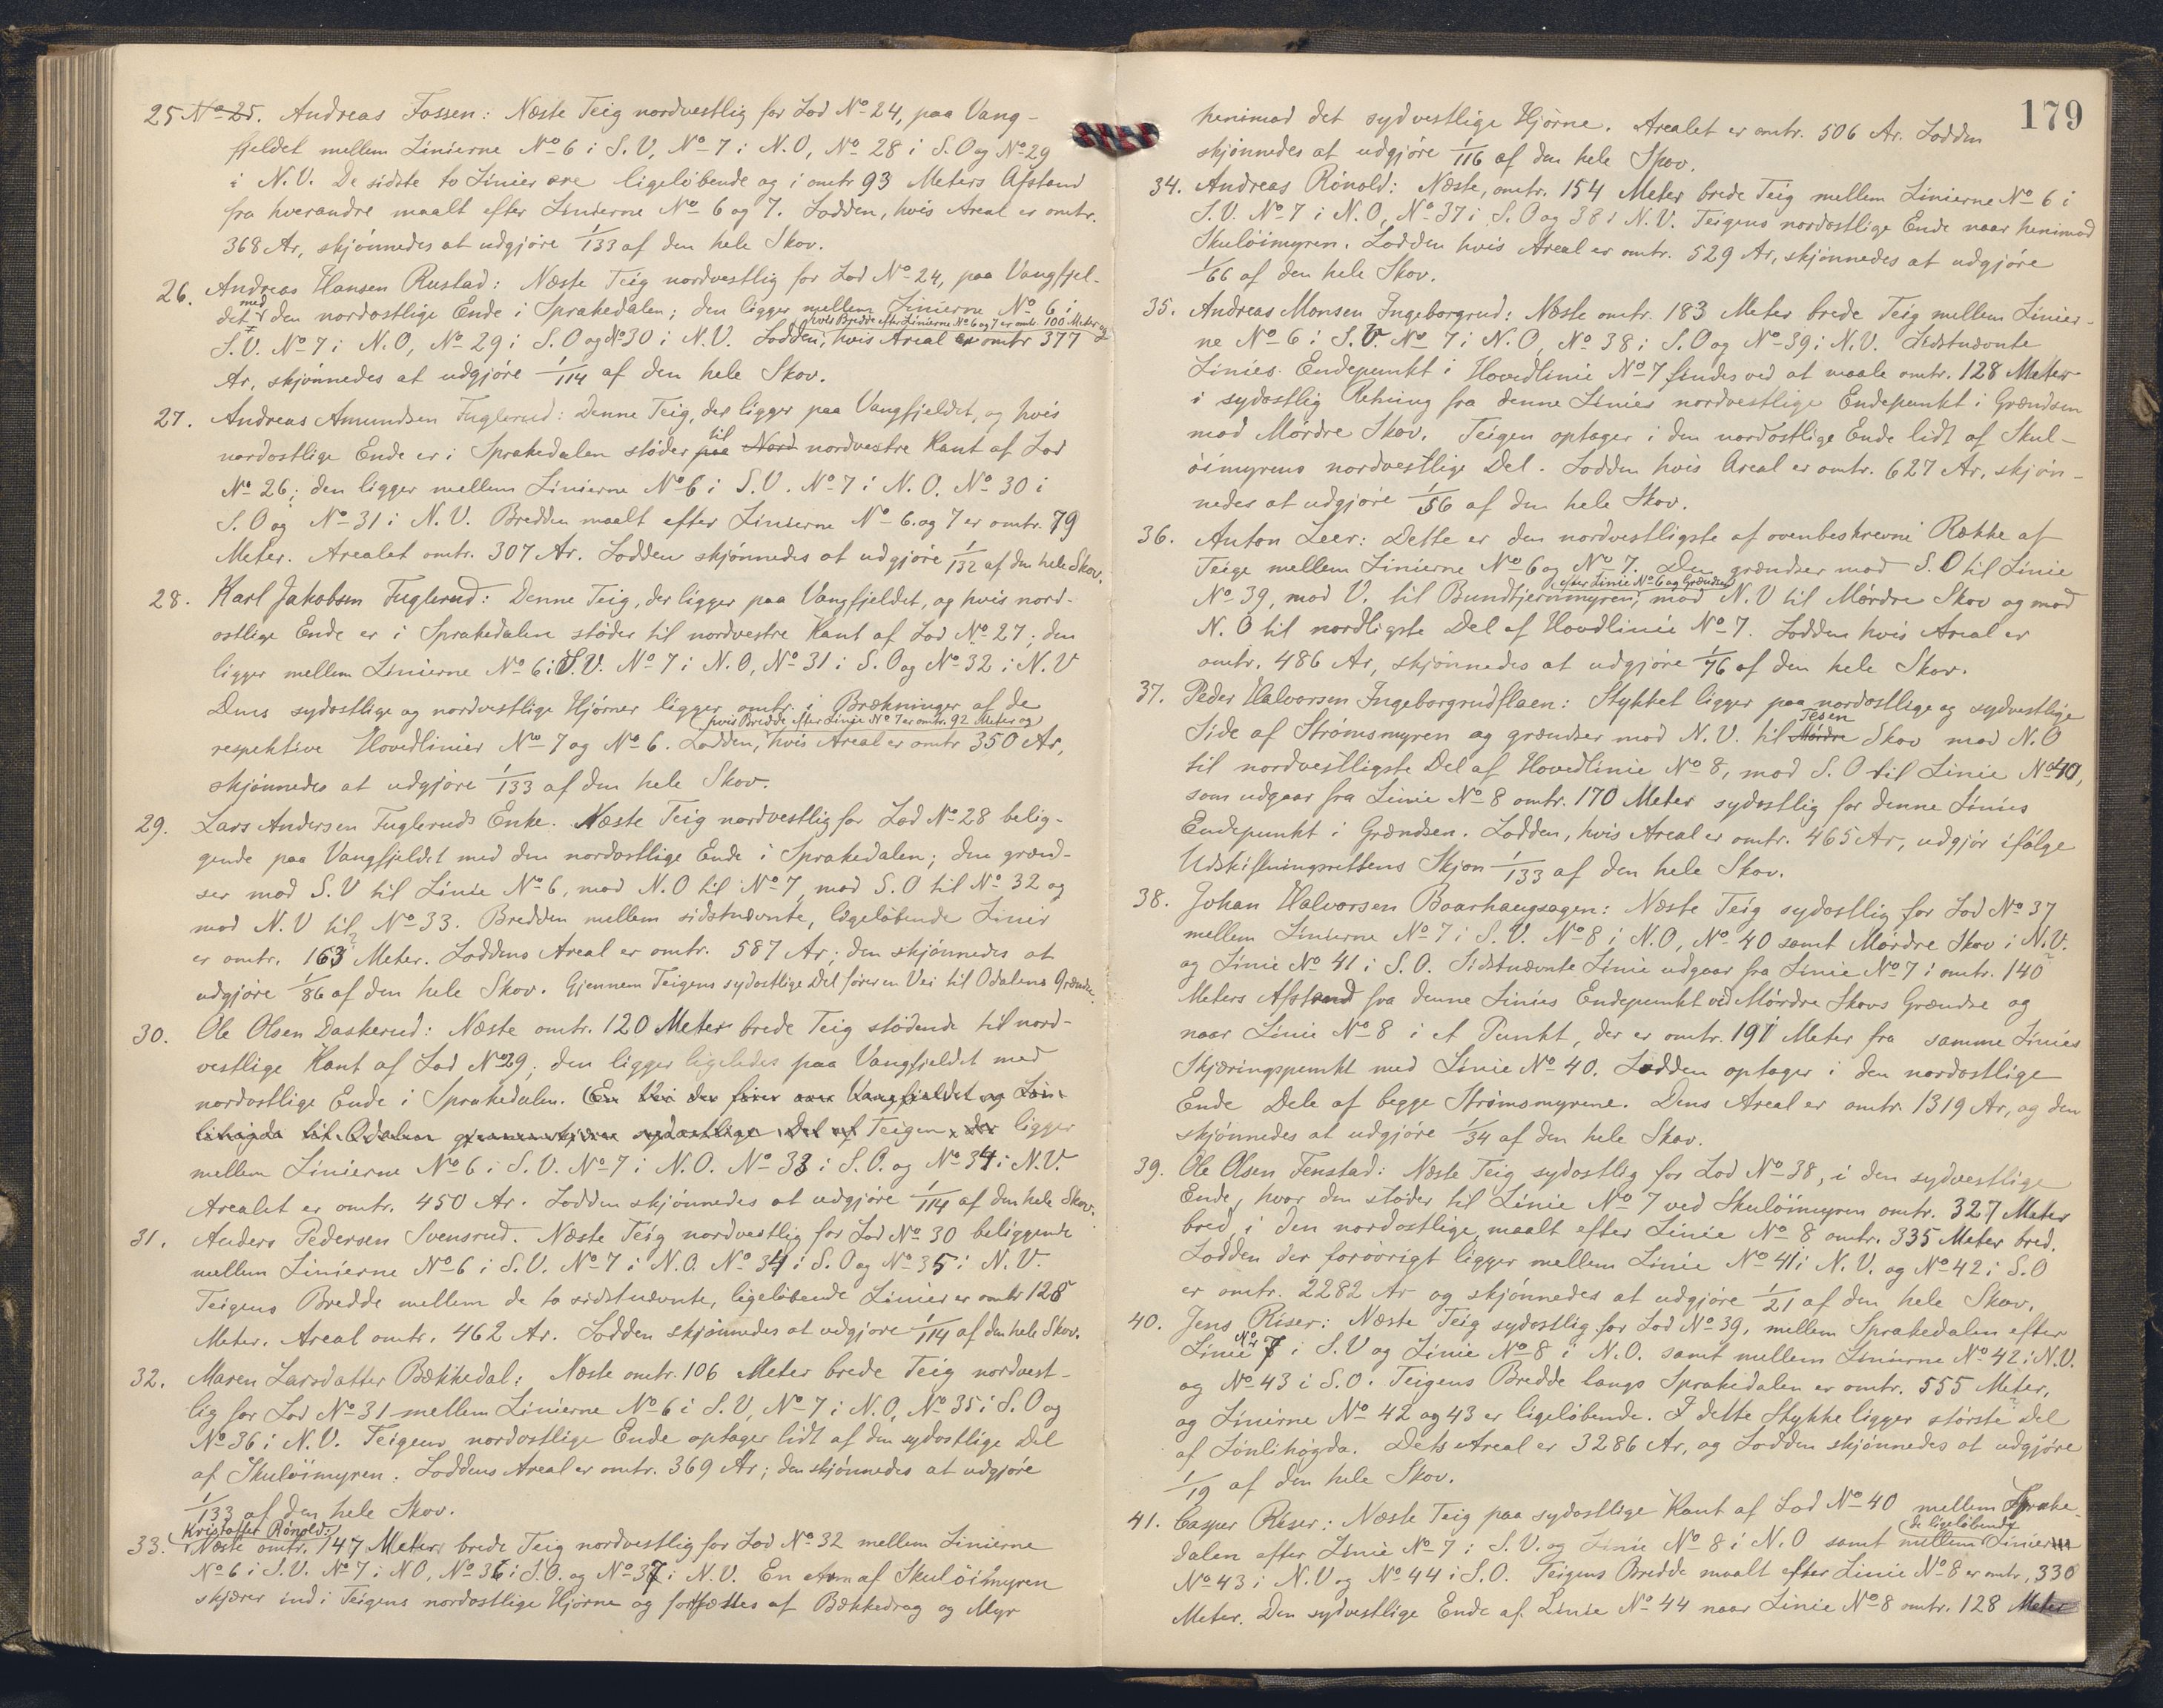 25 No 25. Andreas Fossen: Næste Teig nordvestlig for Lod No 24, paa Vang-
fjeldet mellem Linierne No 6 i S.V, No 7 i N.O, No 28 i S.O og No 29
i N.V. De sidste to Linier ere ligeløbende og i omtr 93 Meters Afstand
fra hverandre maalt efter Linierne No 6 og 7. Lodden, hvis Areal er omtr.
368 Ar, skjønnedes at udgjøre 1/133 af den hele Skov.
26. Andreas Hansen Rustad: Næste Teig nordvestlig for Lod No 24, paa Vangfjel-
det med den nordostlige Ende i Sprakedalen; den ligger mellem Linierne No 6 i
hvis Bredde efter Linierne No 6 og 7 er omtr. 100 Meter og
S.V. No 7 i N.O, No 29 i S.O og No 30 i N.V. Lodden, hvis Areal er omtr 377
Ar, skjønnedes at udgjøre 1/114 af den hele Skov.
27. Andreas Amundsen Fuglerud: Denne Teig, der ligger paa Vangfjeldet, og hvis
nordostlige Ende er i Sprakedalen støder paa til Nord nordvestre Kant af Lod
No 26; den ligger mellem Linierne No 6 i S.V. No 7 i N.O. No 30 i
S.O og No 31 i N.V. Bredden maalt efter Linierne No 6 og 7 er omtr. 79
Meter. Arealet omtr. 307 Ar. Lodden skjønnedes at udgjøre 1/132 af den hele Skov.
28. Karl Jakobsen Fuglerud: Denne Teig, der ligger paa Vangfjeldet, og hvis nord-
ostlige Ende er i Sprakedalen støder til nordvestre Kant af Lod No 27; den
ligger mellem Linierne No 6 i S.V. No 7 i N.O, No 31 i S.O og No 32 i N.V
Dens sydostlige og nordvestlige Hjørner ligger omtr. i Brækninger af de
hvis Bredde efter Linie No 7 er omtr. 92 Meter og
respektive Hovedlinier No 7 og No 6. Lodden, hvis Areal er omtr 350 Ar,
skjønnedes at udgjøre 1/133 af den hele Skov.
29. Lars Andersen Fugleruds Enke. Næste Teig nordvestlig for Lod No 28 belig-
gende paa Vangfjeldet med den nordostlige Ende i Sprakedalen; den grænd-
ser mod S.V til Linie No 6, mod N.O til No 7, mod S.O til No 32 og
mod N.V til No 33. Bredden mellem sidstnævnte, ligeløbende Linier
er omtr. 163 Meter. Loddens Areal er omtr. 587 Ar; den skjønnedes at
udgjøre 1/86 af den hele Skov. Gjennem Teigens sydostlige Del fører en Vei til Odalens Grændse.
30. Ole Olsen Daskerud: Næste omtr. 120 Meter brede Teig stødende til nord-
vestlige Kant af Lod No 29; den ligger ligeledes paa Vangfjeldet med
nordostlige Ende i Sprakedalen. (En Vei der fører over Vangfjeldet og Løn-
lihøgda til Odalen gjennemskjærer sydostlige Del af Teigen, der ligger
mellem Linierne No 6 i S.V. No 7 i N.O. No 33 i S.O. og No 34 i N.V.
Arealet er omtr. 450 Ar. Lodden skjønnedes at udgjøre 1/114 af den hele Skov.
31. Anders Pedersen Svensrud. Næste Teig nordvestlig for Lod No 30 beliggende
mellem Linierne No 6 i S.V. No 7 i N.O. No 34 i S.O og No 35 i N.V.
Teigens Bredde mellem de to sidstnævnte, ligeløbende Linier er omtr 128
Meter. Areal omtr. 462 Ar. Lodden skjønnedes at udgjøre 1/114 af den hele Skov.
32. Maren Larsdatter Bækkedal: Næste omtr. 106 Meter brede Teig nordvest-
lig for Lod No 31 mellem Linierne No 6 i S.V, No 7 i N.O, No 35 i S.O og
No 36 i N.V. Teigens nordostlige Ende optager lidt af den sydostlige Del
af Skuløimyren. Loddens Areal er omtr. 369 Ar; den skjønnedes at udgjøre
1/133 af den hele Skov.
Kristoffer Rønold:
33. Næste omtr. 147 Meter brede Teig nordvestlig for Lod No 32 mellem Linierne
No 6 i S.V. No 7 i NO, No 36 i S.O. og No 37 i N.V. En Arm af Skuløimyren
skjærer ind i Teigens nordostlige Hjørne og fortsættes af Bækkedrag og Myr
179
henimod det sydvestlige Hjørne. Arealet er omtr. 506 Ar. Lodden
skjønnedes at udgjøre 1/116 af den hele Skov.
34. Andreas Rønold: Næste, omtr. 154 Meter brede Teig mellem Linierne No 6 i
S.V. No 7 i N.O, No 37 i S.O og 38 i N.V. Teigens nordostlige Ende naar henimod
Skuløimyren. Lodden hvis Areal er omtr. 529 Ar, skjønnedes at udgjøre
1/66 af den hele Skov.
35. Andreas Monsen Ingeborgrud: Næste omtr. 183 Meter brede Teig mellem Linier-
ne No 6 i S.V. No 7 i N.O, No 38 i S.O og No 39 i N.V. Sidstnævnte
Linies Endepunkt i Hovedlinie No 7 findes ved at maale omtr. 128 Meter
i sydostlig Retning fra denne Linies nordvestlige Endepunkt i Grændsen
mod Mørdre Skov. Teigen optager i den nordostlige Ende lidt af Skul-
øimyrens nordvestlige Del. Lodden hvis Areal er omtr. 627 Ar, skjøn-
nedes at udgjøre 1/56 af den hele Skov.
36. Anton Leer: Dette er den nordvestligste af ovenbeskrevne Række af
Teige mellem Linierne No 6 og No 7. Den grændser mod S.O til Linie
efter Linie No 6 og Grændsen
No 39, mod V. til Bundtjernmyren, mod N.V til Mørdre Skov og mod
N.O til nordligste Del af Hovdlinie No 7. Lodden hvis Areal er
omtr. 486 Ar, skjønnedes at udgjøre 1/76 af den hele Skov.
37. Peder Halvorsen Ingeborgrudflaen: Stykket ligger paa nordostlige og sydvestlige
Side af Strømsmyren og grændser mod N.V. til Mørdre Tesen Skov mod N.O
til nordvestligste Del af Hovedlinie No 8, mod S.O til Linie No 40,
som udgaar fra Linie No 8 omtr. 170 Meter sydostlig for denne Linies
Endepunkt i Grændsen. Lodden, hvis Areal er omtr. 465 Ar, udgjør ifølge
Udskiftningsrettens Skjøn 1/133 af den hele Skov.
38. Johan Halvorsen Baarhaugsagen: Næste Teig sydostlig for Lod No 37
mellem Linierne No 7 i S.V. No 8 i N.O, No 40 samt Mørdre Skov i N.V.
og Linie No 41 i S.O. Sidstnævnte Linie udgaar fra Linie No 7 i omtr. 140
Meters Afstand fra denne Linies Endepunkt ved Mørdre Skovs Grændse og
naar Linie No 8 i et Punkt, der er omtr. 191 Meter fra samme Linies
Skjæringspunkt med Linie No 40. Lodden optager i den nordostlige
Ende Dele af begge Strømsmyrene. Dens Areal er omtr. 1319 Ar, og den
skjønnedes at udgjøre 1/34 af den hele Skov.
39. Ole Olsen Fenstad: Næste Teig sydostlig for Lod No 38, i den sydvestlige
Ende, hvor den støder til Linie No 7 ved Skuløimyren omtr. 327 Meter
bred, i den nordostlige, maalt efter Linie No 8 omtr. 335 Meter bred.
Lodden der forøvrigt ligger mellem Linie No 41 i N.V. og No 42 i S.O
er omtr. 2282 Ar og skjønnedes at udgjøre 1/21 af den hele Skov.
40. Jens Riser: Næste Teig sydostlig for Lod No 39, mellem Sprakedalen efter
Linie No 7 i S.V og Linie No 8 i N.O. samt mellem Linierne No 42 i N.V.
og No 43 i S.O. Teigens Bredde langs Sprakedalen er omtr. 555 Meter,
og Linierne No 42 og 43 er ligeløbende. I dette Stykke ligger største Del
af Lønlihøgda. Dets Areal er 3286 Ar, og Lodden skjønnedes at udgjøre
1/19 af den hele Skov.
41. Casper Riser: Næste Teig paa sydostlige Kant af Lod No 40 mellem Sprake-
de ligeløbende
dalen efter Linie No 7 i S.V. og Linie No 8 i N.O samt mellem Linier
No 43 i N.V og No 44 i S.O. Teigens Bredde maalt efter Linie No 8 er omtr. 330
Meter. Den sydvestlige Ende af Linie No 44 naar Linie No 8 omtr. 128 Meter